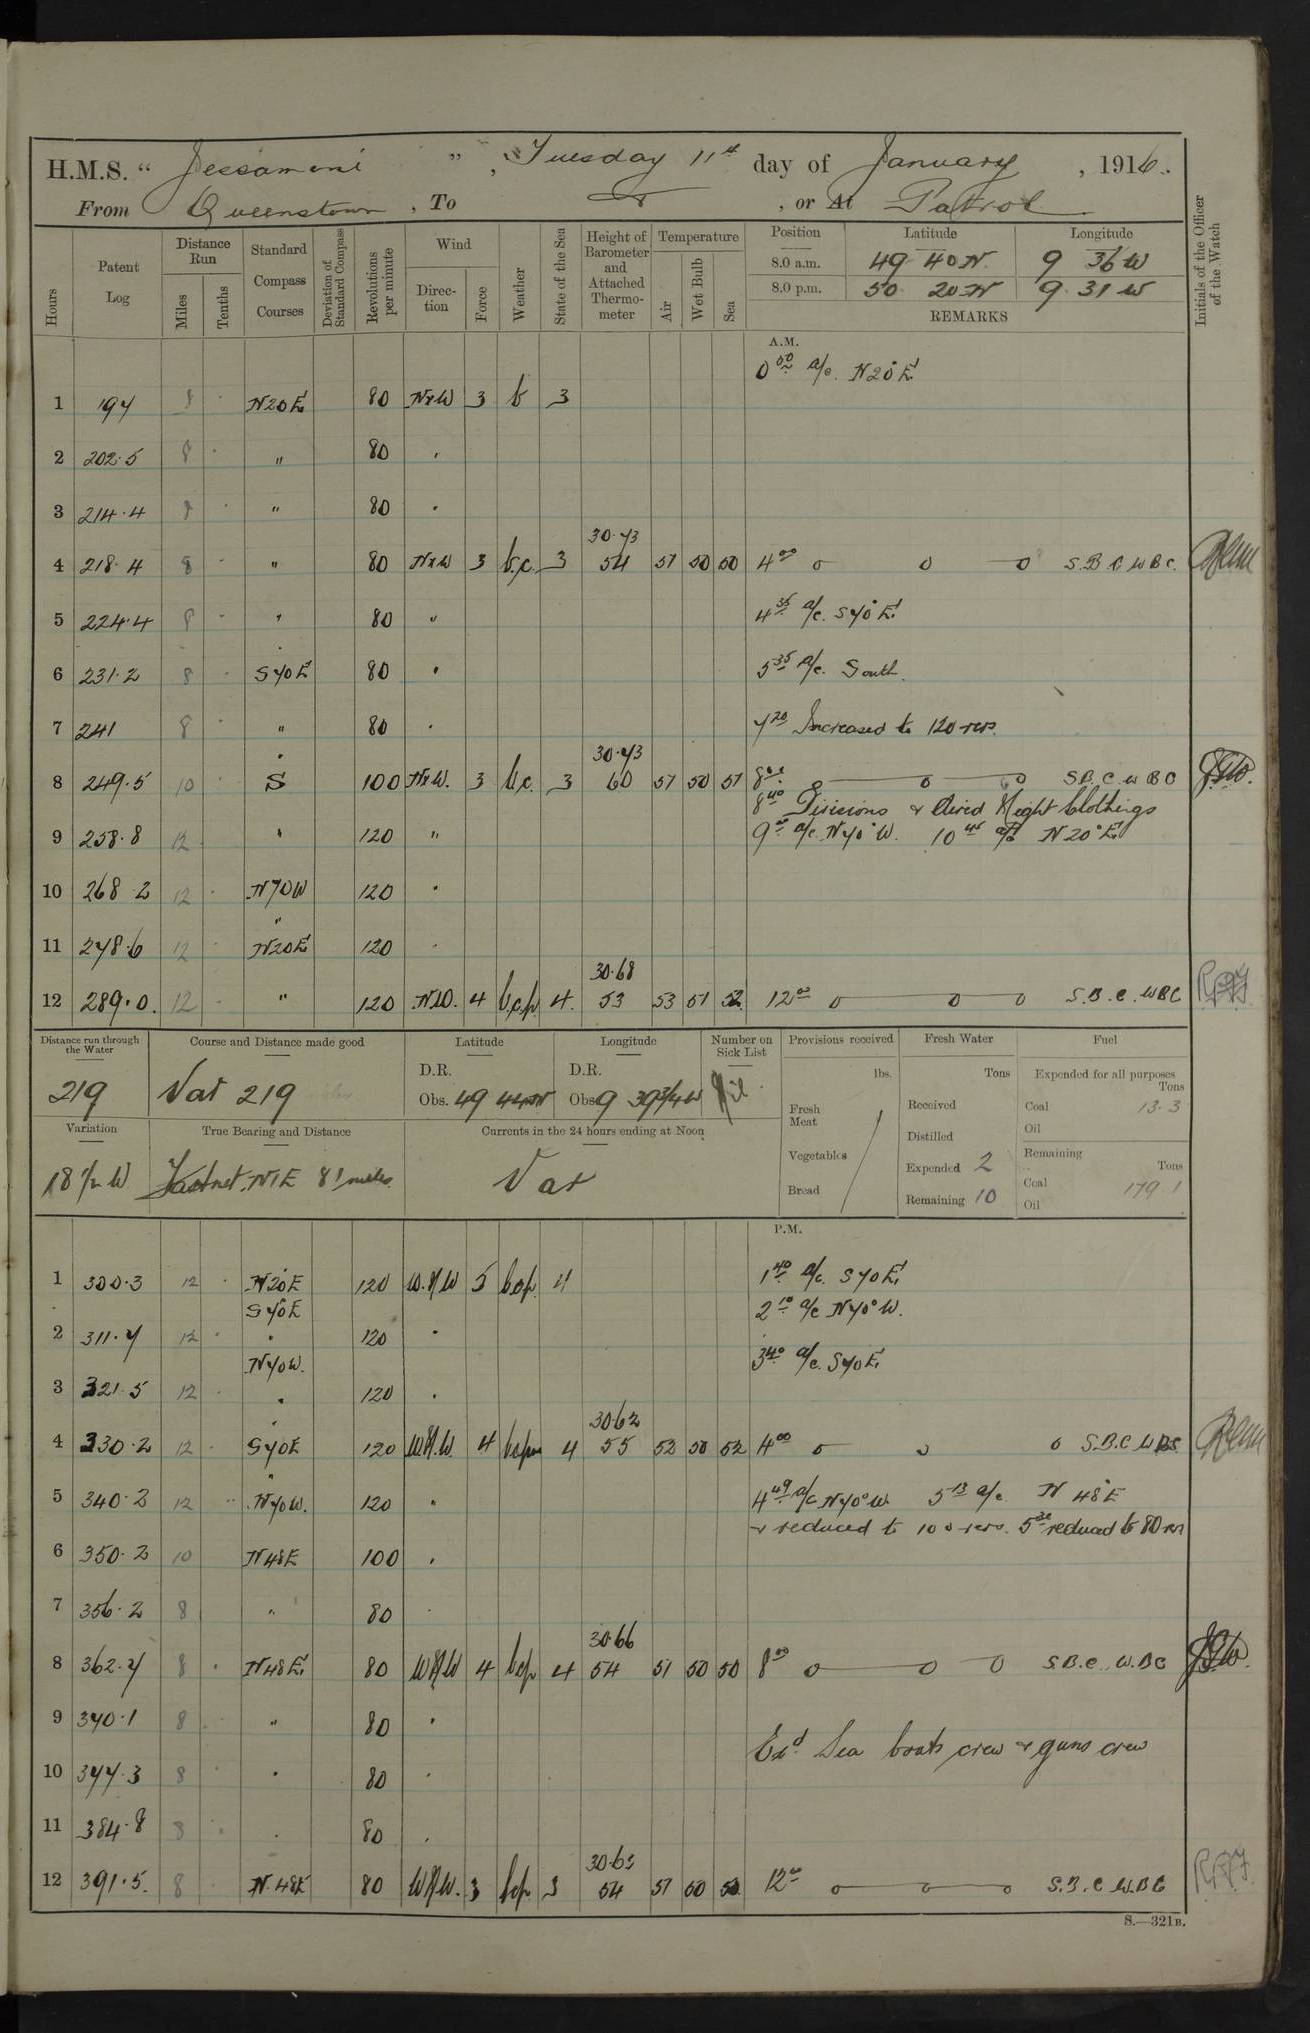 H.M.S. " Jessamine ", Tuesday 11th day of January, 1916.
From Queenstown, To , or At Patrol
Hours
Patent Log
Distance Run
Miles
Tenths
Standard Compass Courses
Deviation of Standard Compass
Revolutions per minute
Wind
Direction
Force
Weather
State of the Sea
Height of Barometer and Attached Thermometer
Temperature
Air
Wet Bulb
Sea
Position Latitude Longitude
8.0 a.m. 49 40 N. 9 36 W
8.0 p.m. 50 20 N 9 31 W
REMARKS
Initials of the Officer of the Watch
A.M.
0 00 a/c. N20°E
1 194 8 N20E 80 NxW 3 b 3
2 202.5 8 " 80 "
3 214.4 8 " 80 "
30.73
4 218.4 8 " 80 NxW 3 b.c. 3 54 51 50 50 4 00 S.B.C. W.B.C.
5 224.4 8 " 80 " 4 35 a/c. S70°E
6 231.2 8 S70E 80 " 5 35 a/c. South.
7 241 8 " 80 " 7 20 Increased to 120 revs.
30.73
8 249.5 10 S 100 NxW. 3 b.c. 3 60 51 50 51 8 00 S.B.C. W B C
8 40 Divisions & Aired Night Clothings
9 258.8 12 " 120 " 9 a/c. N70°W. 10 45 a/c N20°E
10 268.2 12 N70W 120 "
11 278.6 12 N20E 120 "
30.68
12 289.0. 12 " 120 4 b.c.p. 4. 53 53 51 52 12 00 S.B.C. WBC
Distance run through the Water
219
Course and Distance made good
Var 219
Latitude
D.R.
Obs. 49 44 N
Longitude
D.R.
Obs. 9 39 3/4 W
Number on Sick List
Nil
Provisions received
lbs.
Fresh Meat
Vegetables
Bread
Fresh Water
Tons
Received
Distilled
Expended 2
Remaining 10
Fuel
Expended for all purposes
Tons
Coal 13.3
Oil
Remaining
Tons
Coal 179.1
Oil
Variation
18 1/2 W
True Bearing and Distance
Fastnet. N1E 81 miles.
Currents in the 24 hours ending at Noon
Var
P.M.
1 300.3 12 N20E 120 W.N.W 5 bcp. 4 1 40 a/c. S70E
S70E 2 10 a/c N70°W.
2 311.7 12 " 120 "
N70W. 3 40 a/c. S70E
3 321.5 12 " 120 "
30.62
4 330.2 12 S70E 120 WN.W. 4 4 55 52 50 52 4 00 S.B.C W.B.C.
5 340.2 12 N70W. 120 " 4 49 a/c N70°W. 5 13 a/c. N 48°E
& reduced to 100 revs. 5 30 reduced to 80 rev
6 350.2 10 N48E 100 "
7 356.2 8 " 80 "
30.66
8 362.7 8 N48E 80 WNW 4 bcp 4 54 51 50 50 8 00 S.B.C. W.B.C
9 370.1 8 " 80 "
Exd. Sea boats crew & guns crew
10 377.3 8 " 80 "
11 384.8 8 " 80 "
30.63
12 391.5. 8 N.48E 80 WNW. 3 bcp. 3 54 51 50 50 12 00 S.B.C W.B.C
S.—321B.